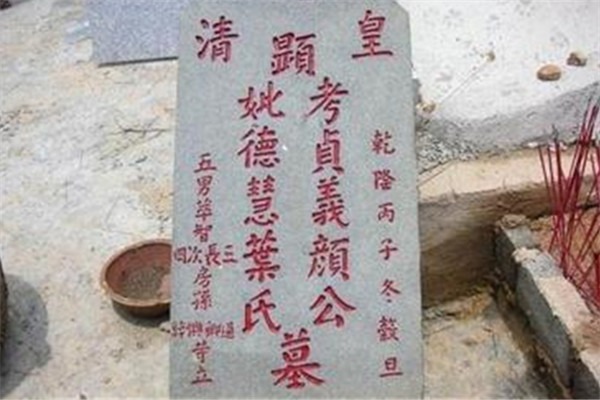 皇清
乾隆丙子冬·穀旦
顯
考貞義顏公
妣德慧葉氏
墓
五男華智
三長次四
房孫
等立